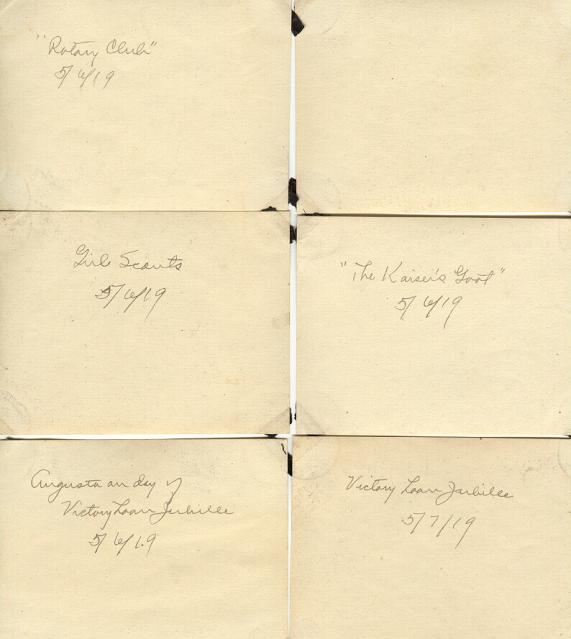 "Rotary Club"
5/6/19
Girl Scouts
5/6/19
"The Kaiser's Goat"
5/6/19
Augusta on day of
Victory Loan Jubilee
5/6/19
Victory Loan Jubilee
5/7/19